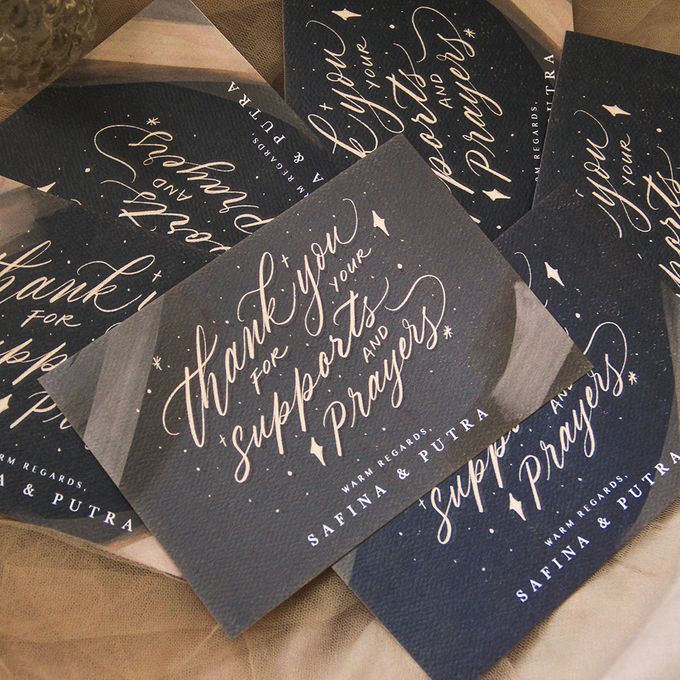 thank you
FOR YOUR
supports
AND
prayers
WARM REGARDS,
SAFINA & PUTRA
you
YOUR
supports
AND
prayers
WARM REGARDS,
& PUTRA
you
YOUR
AND
prayers
REGARDS,
& PUTRA
you
YOUR
thank
FOR
WARM REGARDS,
& PUTRA
AND
prayers
WARM REGARDS,
SAFINA & PUTRA